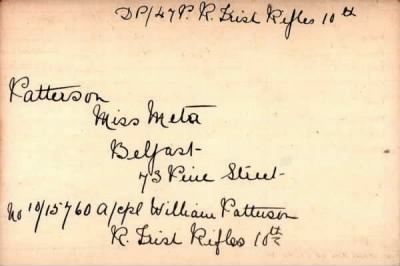 DP/47P. R. Irish Rifles 10th
Patterson
Miss Meta
Belfast
73 Pine Street
No 10/15760 A/cpl William Patterson
R. Irish Rifles 10th